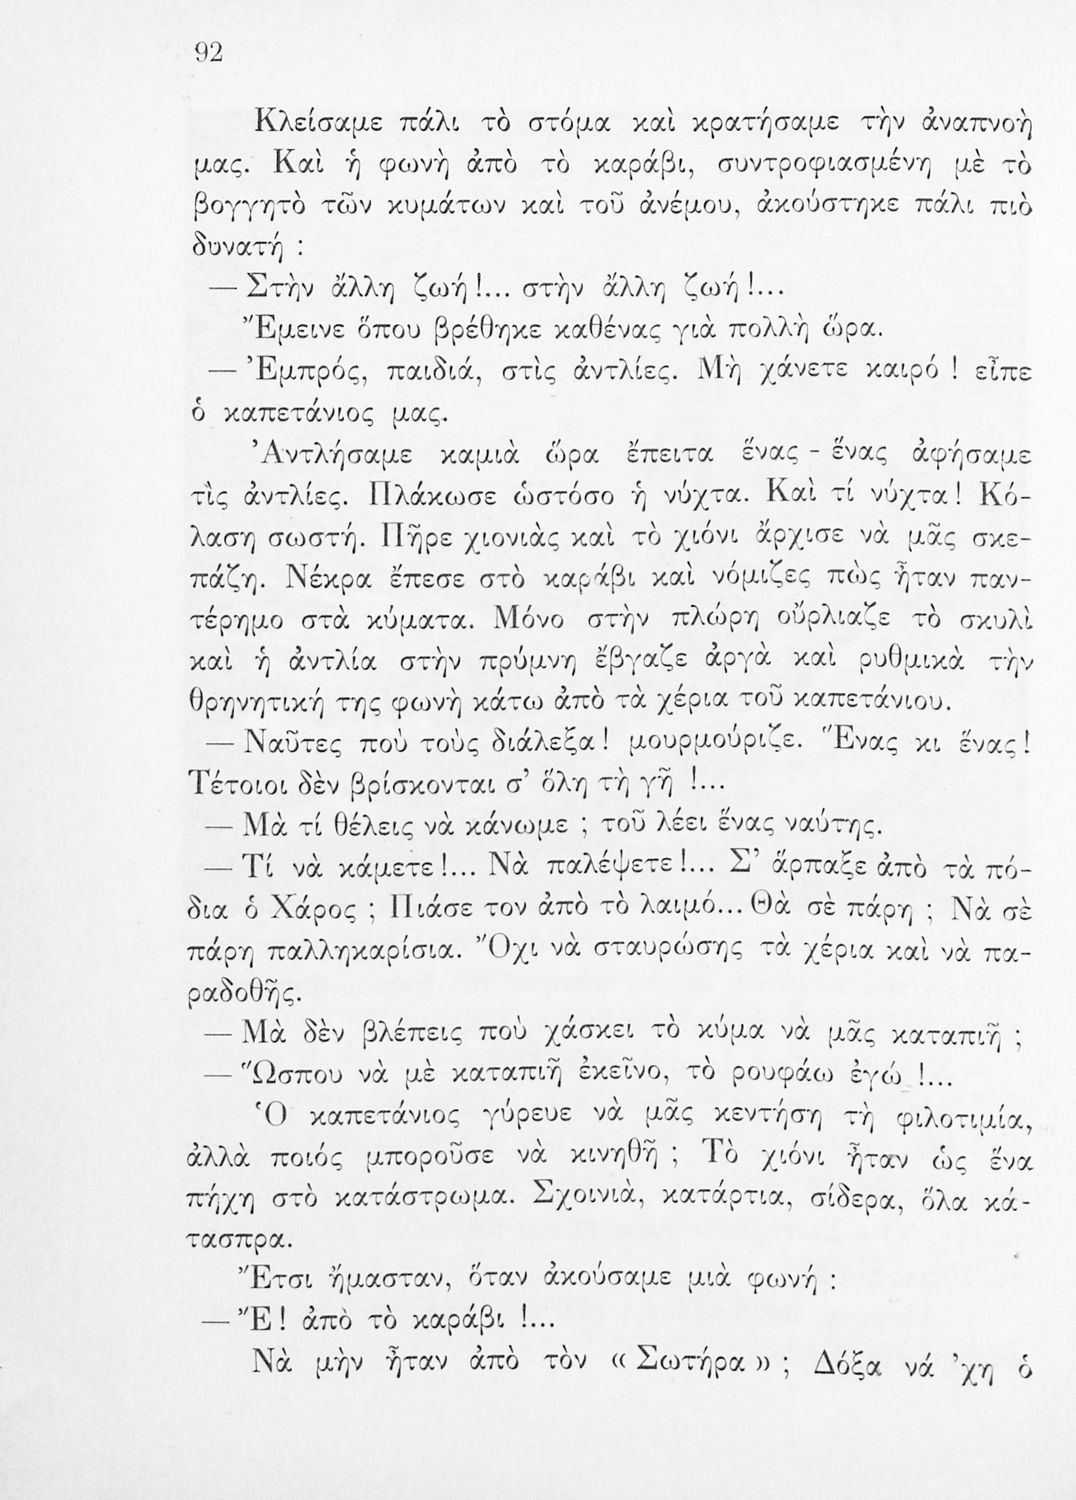 92
Κλείσαμε πάλι τὸ στόμα καὶ κρατήσαμε τὴν ἀναπνοὴ
μας. Καὶ ἡ φωνὴ ἀπὸ τὸ καράβι, συντροφιασμένη μὲ τὸ
βογγητὸ τῶν κυμάτων καὶ τοῦ ἀνέμου, ἀκούστηκε πάλι πιὸ
δυνατή :
— Στὴν ἄλλη ζωή !... στὴν ἄλλη ζωή !...
Ἔμεινε ὅπου βρέθηκε καθένας γιὰ πολλὴ ὥρα.
— Ἐμπρός, παιδιά, στὶς ἀντλίες. Μὴ χάνετε καιρό ! εἶπε
ὁ καπετάνιος μας.
Ἀντλήσαμε καμιὰ ὥρα ἔπειτα ἕνας - ἕνας ἀφήσαμε
τὶς ἀντλίες. Πλάκωσε ὡστόσο ἡ νύχτα. Καὶ τί νύχτα! Κό-
λαση σωστή. Πῆρε χιονιὰς καὶ τὸ χιόνι ἄρχισε νὰ μᾶς σκε-
πάζη. Νέκρα ἔπεσε στὸ καράβι καὶ νόμιζες πὼς ἦταν παν-
τέρημο στὰ κύματα. Μόνο στὴν πλώρη οὔρλιαζε τὸ σκυλὶ
καὶ ἡ ἀντλία στὴν πρύμνη ἔβγαζε ἀργὰ καὶ ρυθμικὰ τὴν
θρηνητική της φωνὴ κάτω ἀπὸ τὰ χέρια τοῦ καπετάνιου.
— Ναῦτες ποὺ τοὺς διάλεξα! μουρμούριζε. Ἕνας κι ἕνας!
Τέτοιοι δὲν βρίσκονται σ’ ὅλη τὴ γῆ !...
— Μὰ τί θέλεις νὰ κάνωμε ; τοῦ λέει ἕνας ναύτης.
— Τί νὰ κάμετε!... Νὰ παλέψετε!... Σ’ ἅρπαξε ἀπὸ τὰ πό-
δια ὁ Χάρος ; Πιάσε τον ἀπὸ τὸ λαιμό... Θὰ σὲ πάρη ; Νὰ σὲ
πάρη παλληκαρίσια. Ὄχι νὰ σταυρώσης τὰ χέρια καὶ νὰ πα-
ραδοθῆς.
— Μὰ δὲν βλέπεις ποὺ χάσκει τὸ κύμα νὰ μᾶς καταπιῆ ;
— Ὥσπου νὰ μὲ καταπιῆ ἐκεῖνο, τὸ ρουφάω ἐγώ !...
Ὁ καπετάνιος γύρευε νὰ μᾶς κεντήση τὴ φιλοτιμία,
ἀλλὰ ποιός μποροῦσε νὰ κινηθῆ ; Τὸ χιόνι ἦταν ὡς ἕνα
πήχη στὸ κατάστρωμα. Σχοινιὰ, κατάρτια, σίδερα, ὅλα κά-
τασπρα.
Ἔτσι ἤμασταν, ὅταν ἀκούσαμε μιὰ φωνή :
— Ἔ! ἀπὸ τὸ καράβι !...
Νὰ μὴν ἦταν ἀπὸ τὸν « Σωτήρα » ; Δόξα νά ’χη ὁ